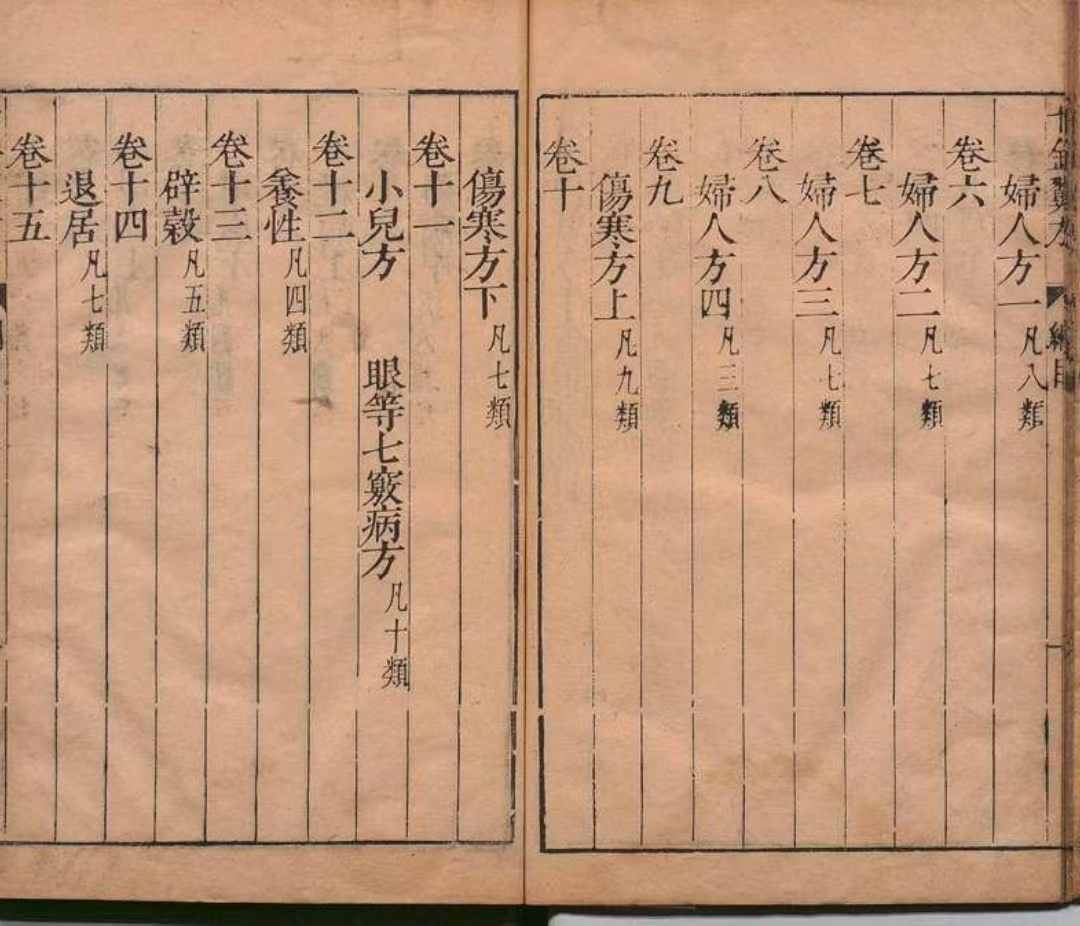 千金翼方 總目
婦人方一凡八類
卷六
婦人方二凡七類
卷七
婦人方三凡七類
卷八
婦人方四凡三類
卷九
傷寒方上凡九類
卷十
傷寒方下凡七類
卷十一
小兒方 眼等七竅病方凡十類
卷十二
養性凡四類
卷十三
辟穀凡五類
卷十四
退居凡七類
卷十五